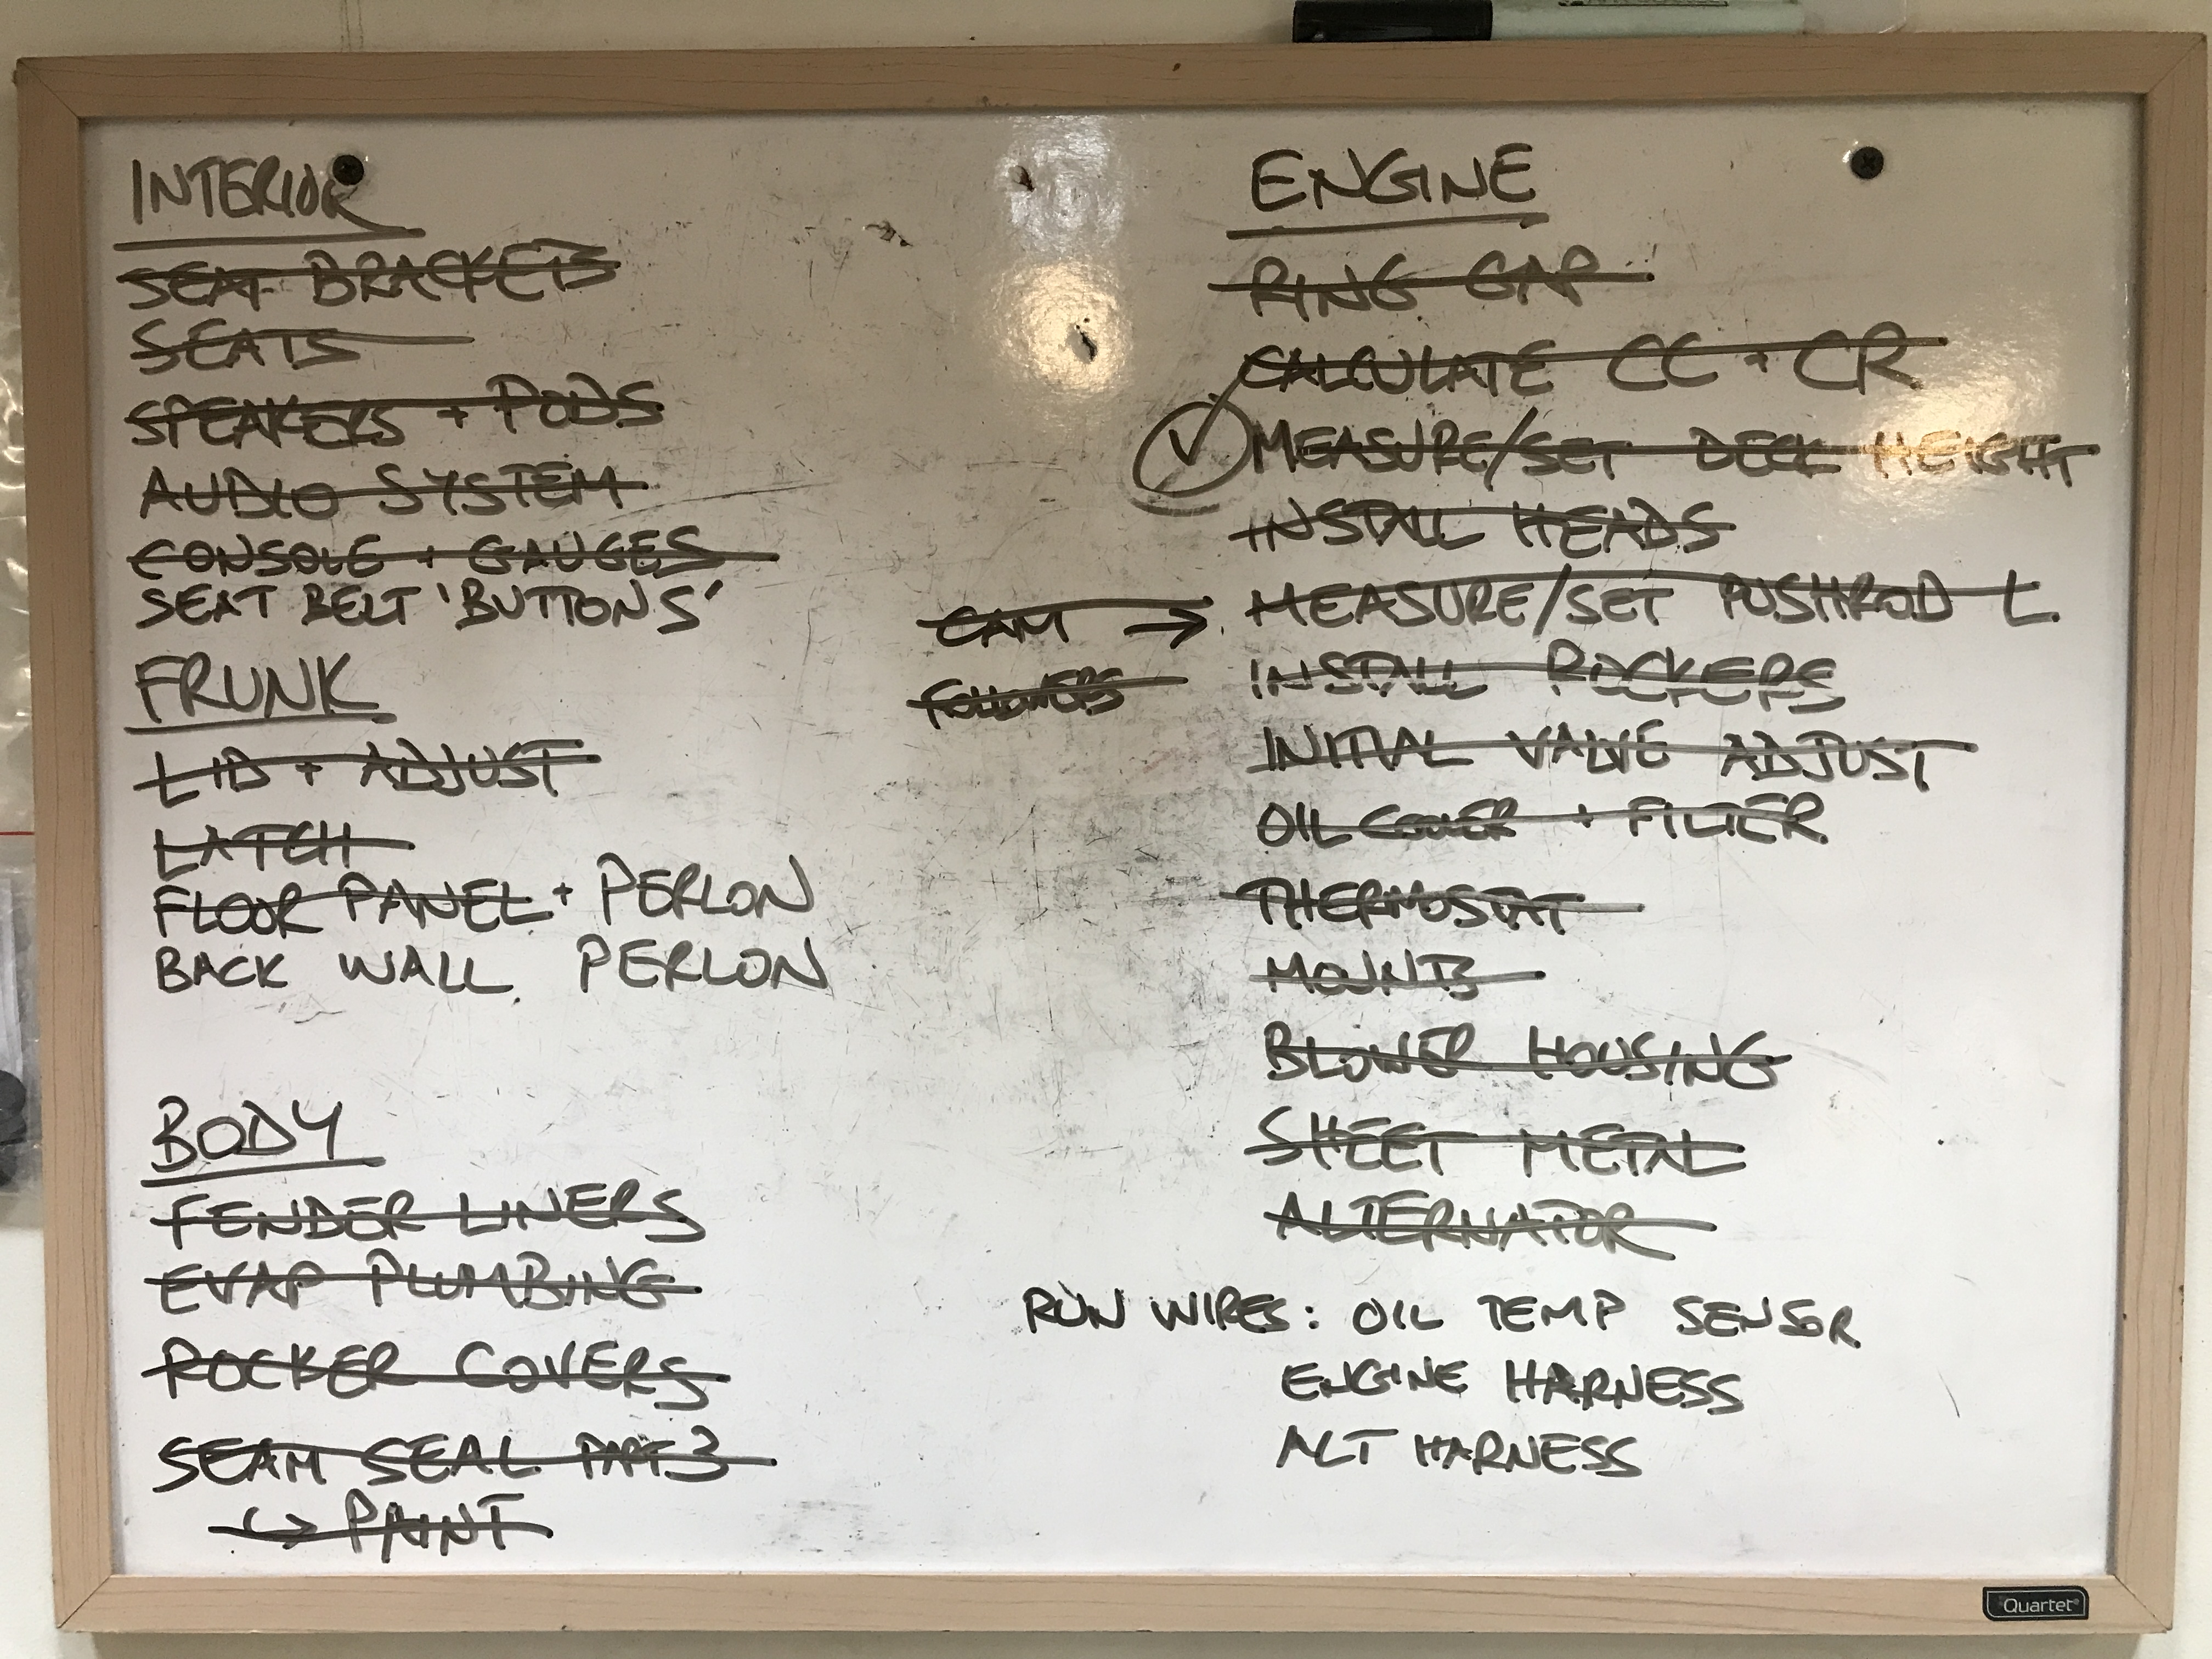 INTERIOR
SEAT BRACKETS
SEATS
SPEAKERS + PODS
AUDIO SYSTEM
CONSOLE + GAUGES
SEAT BELT 'BUTTONS'
FRUNK
LID + ADJUST
LATCH
FLOOR PANEL + PERLON
BACK WALL PERLON
BODY
FENDER LINERS
EVAP PLUMBING
ROCKER COVERS
SEAM SEAL
↳ PAINT
ENGINE
RING GAP
CALCULATE CC + CR
✓ MEASURE/SET DECK HEIGHT
INSTALL HEADS
CAM → MEASURE/SET PUSHROD L.
FOLLOWERS
INSTALL ROCKERS
INITIAL VALVE ADJUST
OIL COOLER + FILTER
THERMOSTAT
MOUNTS
BLOWER HOUSING
SHEET METAL
ALTERNATOR
RUN WIRES: OIL TEMP SENSOR
ENGINE HARNESS
ALT HARNESS
Quartet